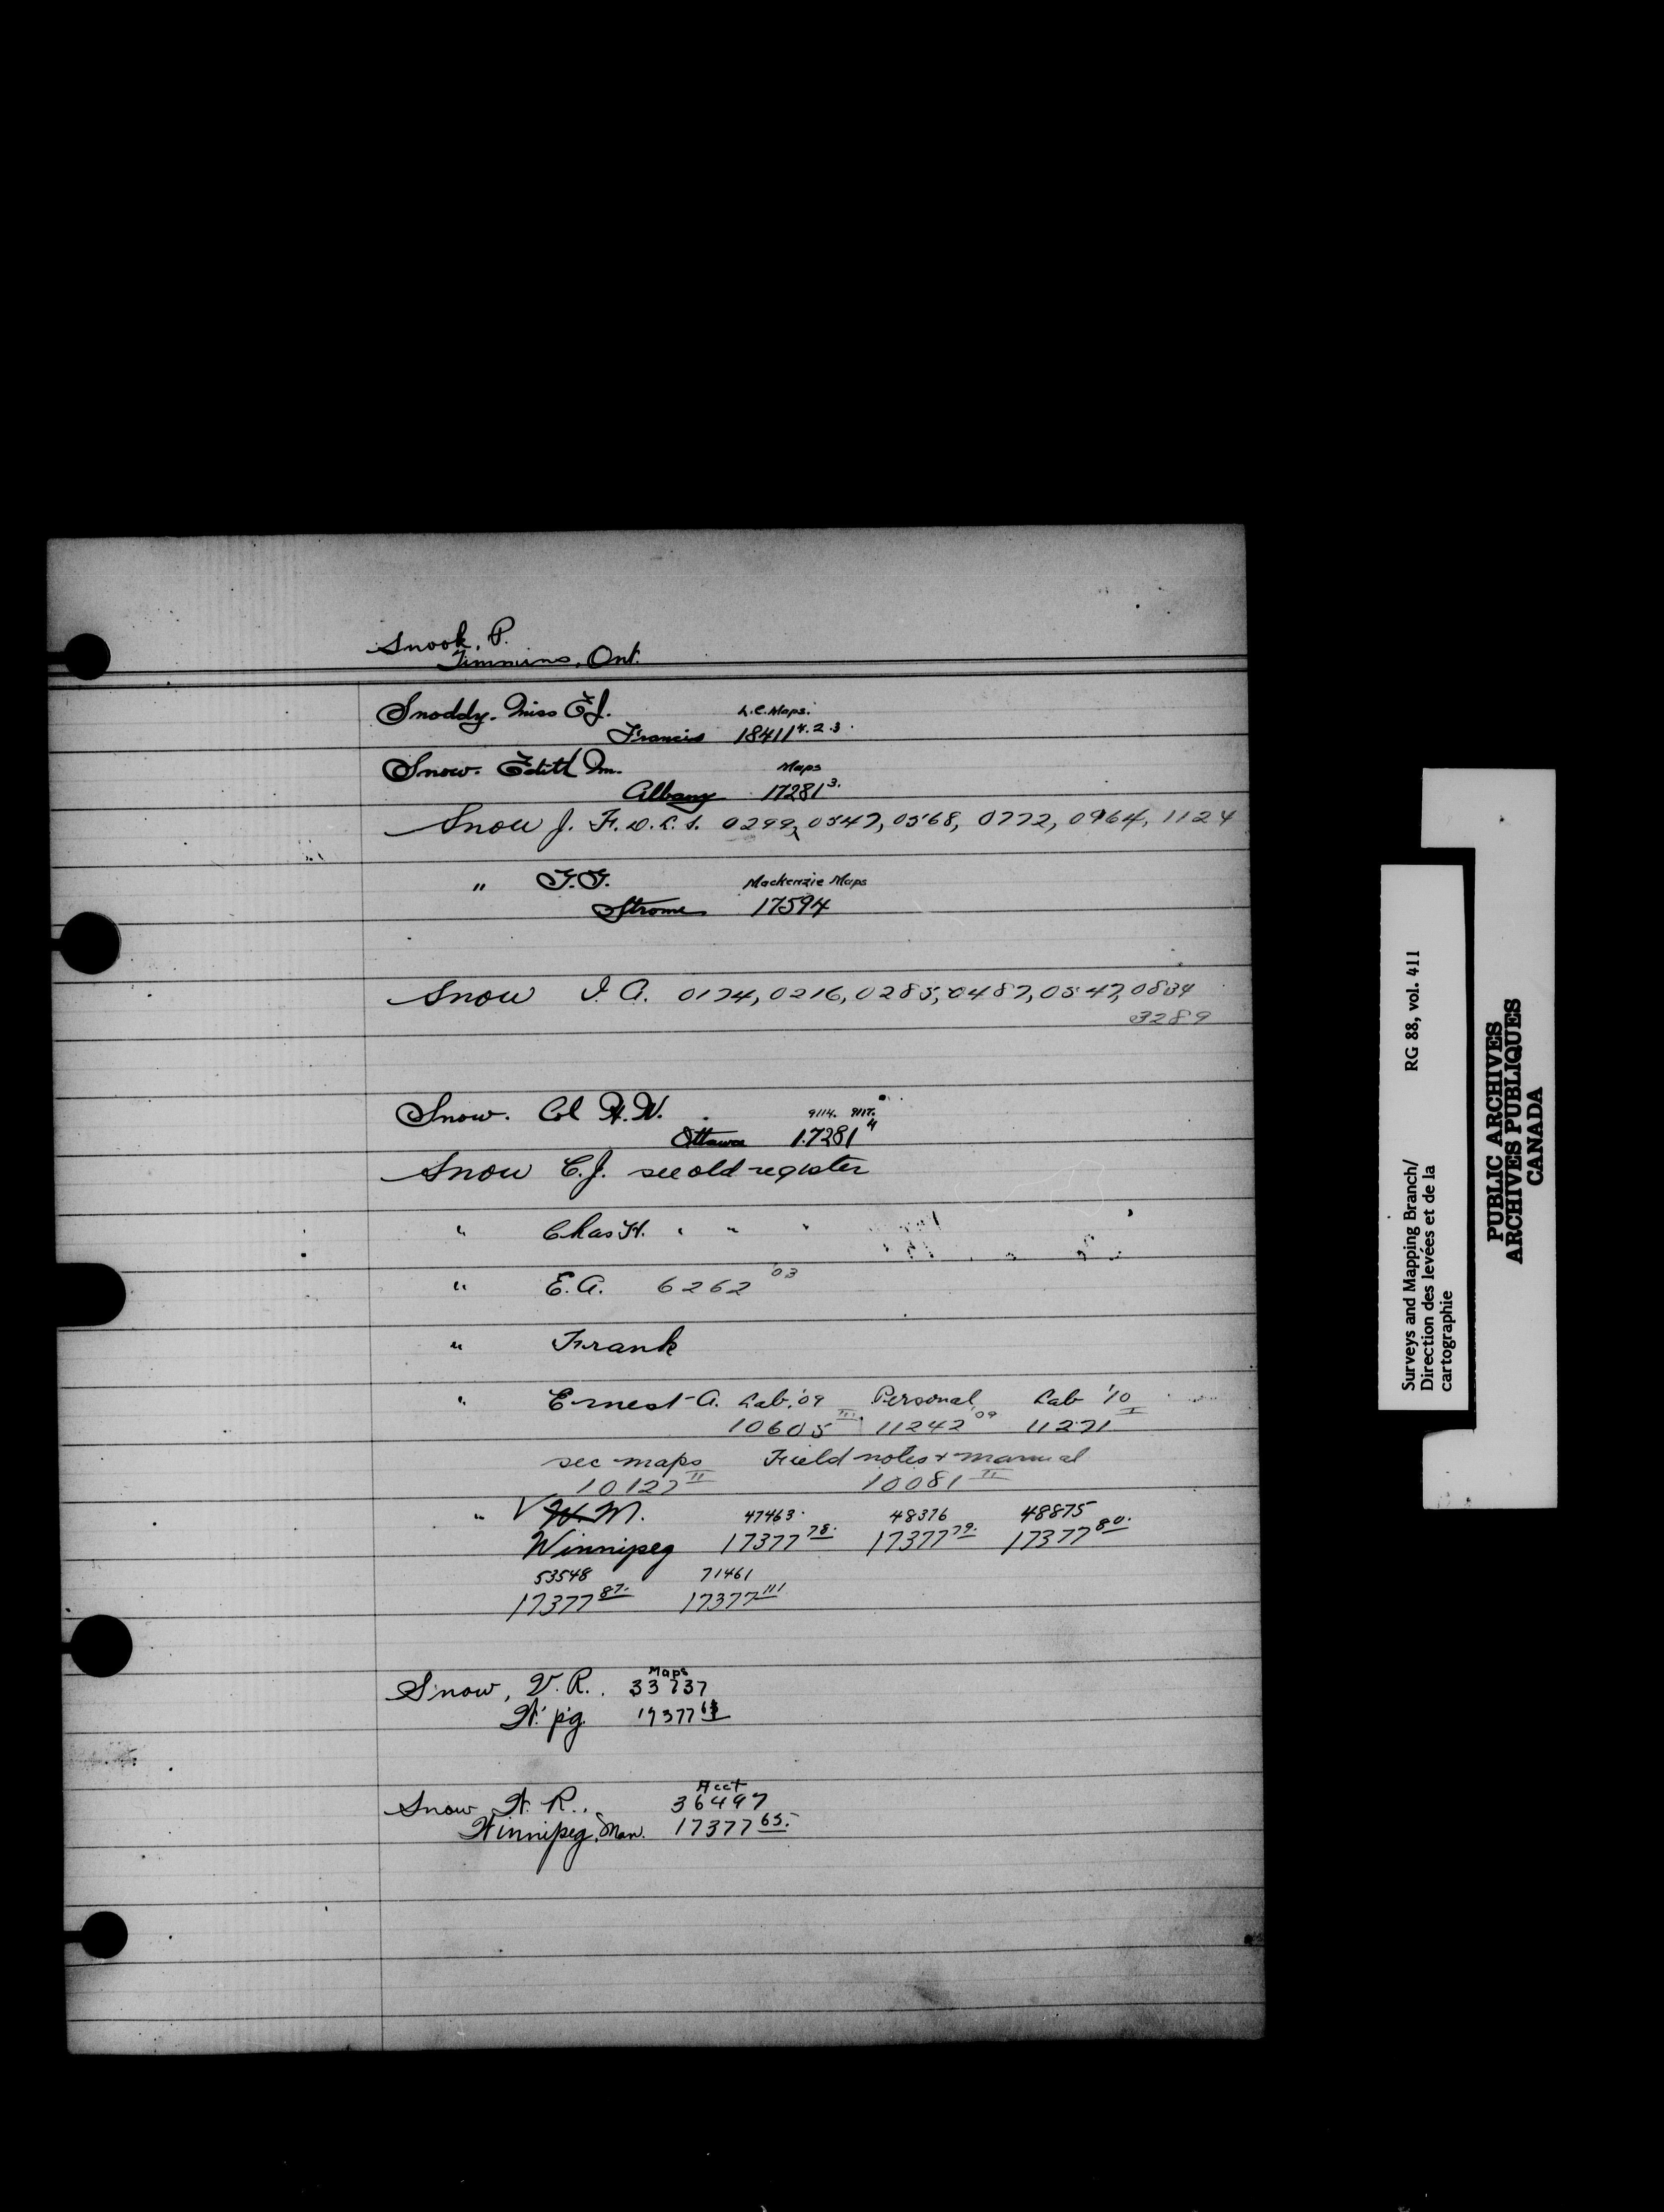 Snook, P.
Timmins, Ont.
Snoddy. Miss E.J. L.C. Maps.
Francis 18411 4.2.3.
Snow. Edith M. Maps
Albany 17281 3.
Snow J. F. D.L.S. 0299, 0547, 0568, 0772, 0964, 1124
" F.F. Mackenzie Maps
Strome 17594
Snow I. A. 0174, 0216, 0285, 0487, 0547, 0834
3289
Snow. Col A.W. 9114. 9117.
Ottawa 17281 4
Snow C.J. see old register
" Chas H. " " "
" E.A. 6262 '03
" Frank
" Ernest A. Lab. '09 Personal Lab '10
10605 III. 11242 '09 11271 I
sec maps Field notes & manual
10127 II 10081 II
" V W. M. 47463. 48376 48875
Winnipeg 17377 78. 17377 79. 17377 80.
53548 71461
17377 87. 17377 111
Maps
Snow, V. R. 33737
W'pg. 17377
Acct
Snow W. R., 36497
Winnipeg, Man. 17377 65.
Surveys and Mapping Branch/ RG 88, vol. 411
Direction des levées et de la
cartographie
PUBLIC ARCHIVES
ARCHIVES PUBLIQUES
CANADA